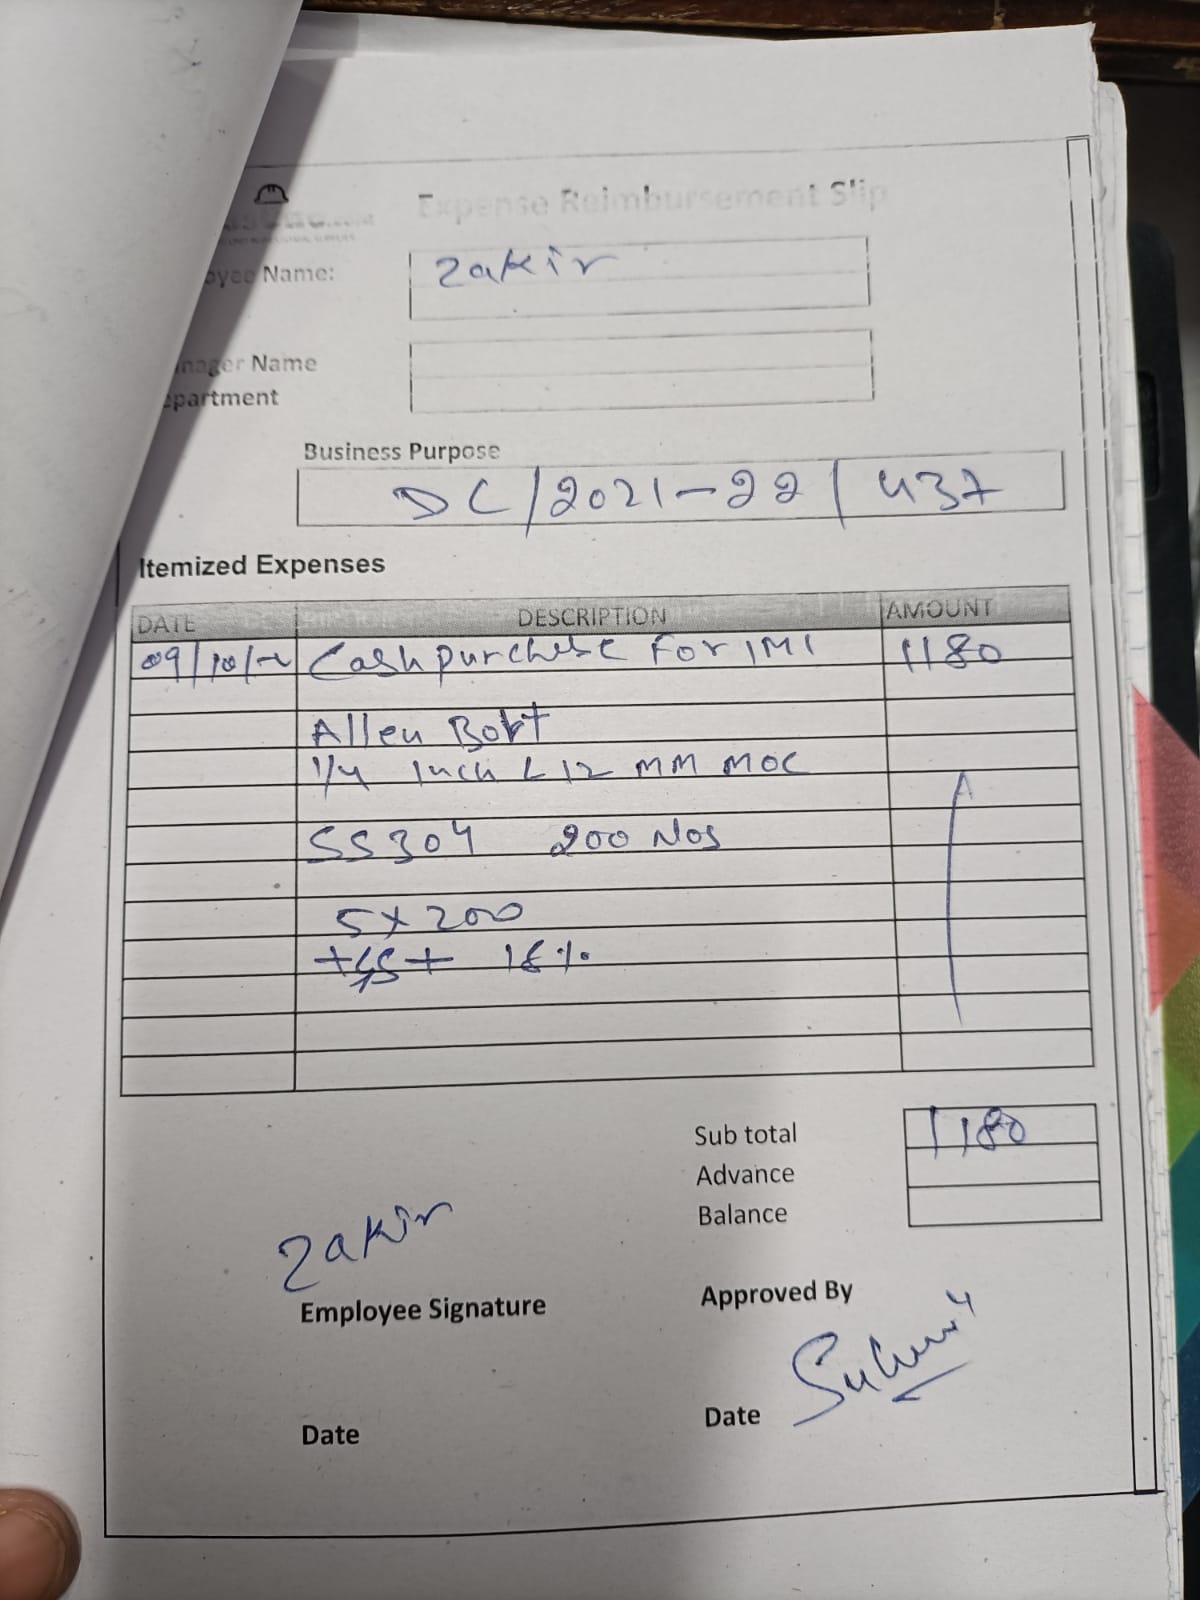 Expense Reimbursement Slip
Name: Zakir
Name
Business Purpose
DC/2021-22/437
Itemized Expenses
DATE DESCRIPTION AMOUNT
Cash purchese For IMI 1180
Allen Bolt
1/4 Inch L 12 MM MOC
SS304 200 Nos
5x200
+gst 18%
Sub total 1180
Advance
Balance
Zakir
Employee Signature Approved By
Date Date